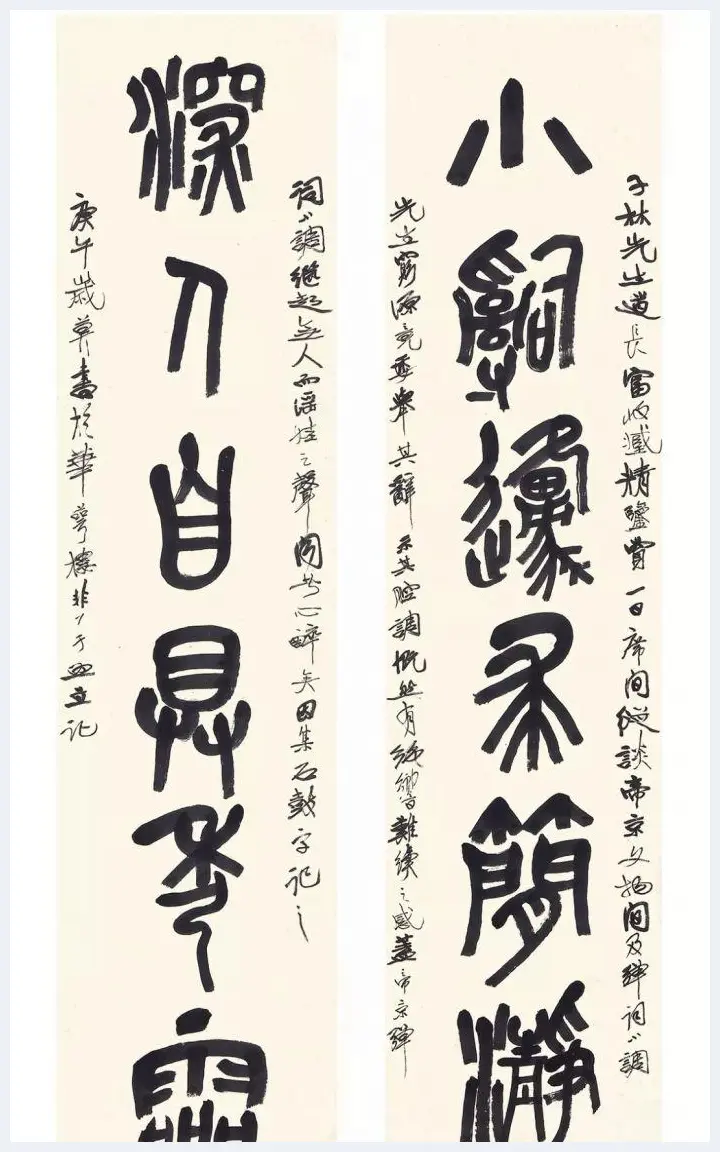 子林先生道長富收藏精鑒賞一日席間縱談帝京文物間及彈詞小調
小辭邍柔簡瀞
先生窮源竟委舉其辭示其腔調慨然有絕響難續之感蓋帝京彈
詞小調繼起無人而滛哇之聲聞者心醉矣因集石鼓字記之
深人自具秀靈
庚午歲莫書於華萼樓非厂于照並記